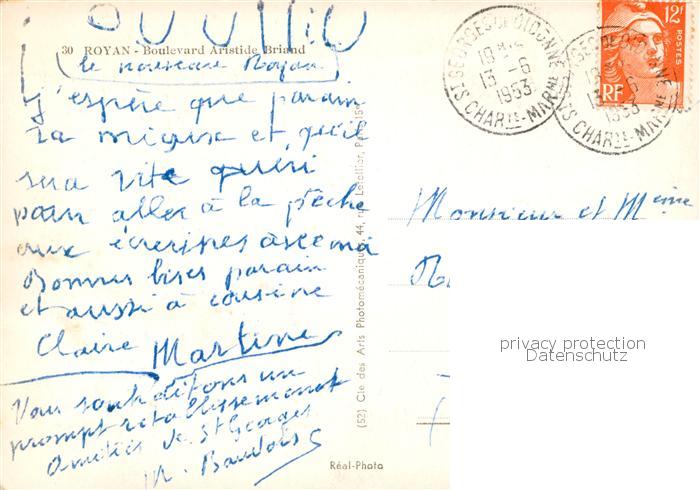 30 ROYAN - Boulevard Aristide Briand
le nouveau Royan
J'espère que parain
va mieux et qu'il
sera vite guéri
pour aller à la pêche
aux écrevises avec moi
Bonnes bises parain
et aussi à cousine
Claire Martine
Vous souhaitons un
prompt rétablissement
Amitiés de St Georges
M. Baudois
Réal-Photo
(52) Cie des Arts Photomécaniques, 44, rue Letellier,
ST GEORGES DE DIDONNE
13 - 6
1953
CHARTE-MARME
12F
POSTES
RF
Monsieur et Mme
privacy protection
Datenschutz